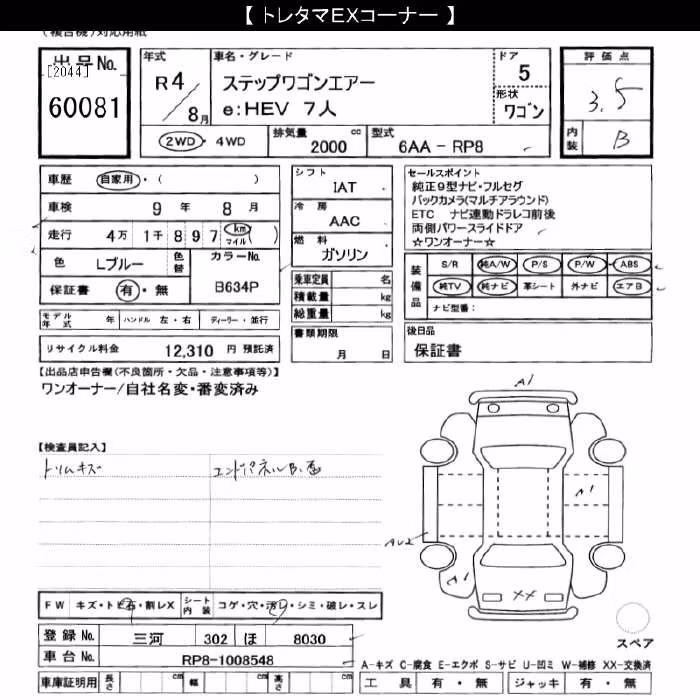 【 トレタマEXコーナー 】
(複合機)対応用紙
出品No.
[2044]
60081
年式
R4/8月
車名・グレード
ステップワゴンエアー
e:HEV 7人
ドア
5
形状
ワゴン
評価点
3.5
内装
B
2WD・4WD
排気量
2000 cc
型式
6AA - RP8
車歴 自家用・( )
車検 9 年 8 月
走行 4万 1千 8 9 7 (km マイル)
色 Lブルー 色替 カラーNo.
保証書 有・無 B634P
モデル年式 年 ハンドル 左・右 ディーラー・並行
リサイクル料金 12,310 円 預託済
シフト
IAT
冷房
AAC
燃料
ガソリン
乗車定員 名
積載量 kg
総重量 kg
書類期限
月 日
セールスポイント
純正9型ナビ・フルセグ
バックカメラ(マルチアラウンド)
ETC ナビ連動ドラレコ前後
両側パワースライドドア
☆ワンオーナー☆
装備品
S/R 純A/W P/S P/W ABS
純TV 純ナビ 革シート 外ナビ エアB
ナビ型番:
後日品
保証書
【出品店申告欄(不良箇所・欠品・注意事項等)】
ワンオーナー/自社名変・番変済み
【検査員記入】
トリムキズ
エンドパネルB・歪
A1
A1
AU2
A1
XX
FW キズ・トビ石・割レX シート内装 コゲ・穴・汚レ・シミ・破レ・スレ
登録No. 三河 302 ほ 8030
車台No. RP8-1008548
車庫証明用 長さ cm 幅 cm 高さ cm
スペア
A-キズ C-腐食 E-エクボ S-サビ U-凹ミ W-補修 XX-交換済
工具 有・無 ジャッキ 有・無